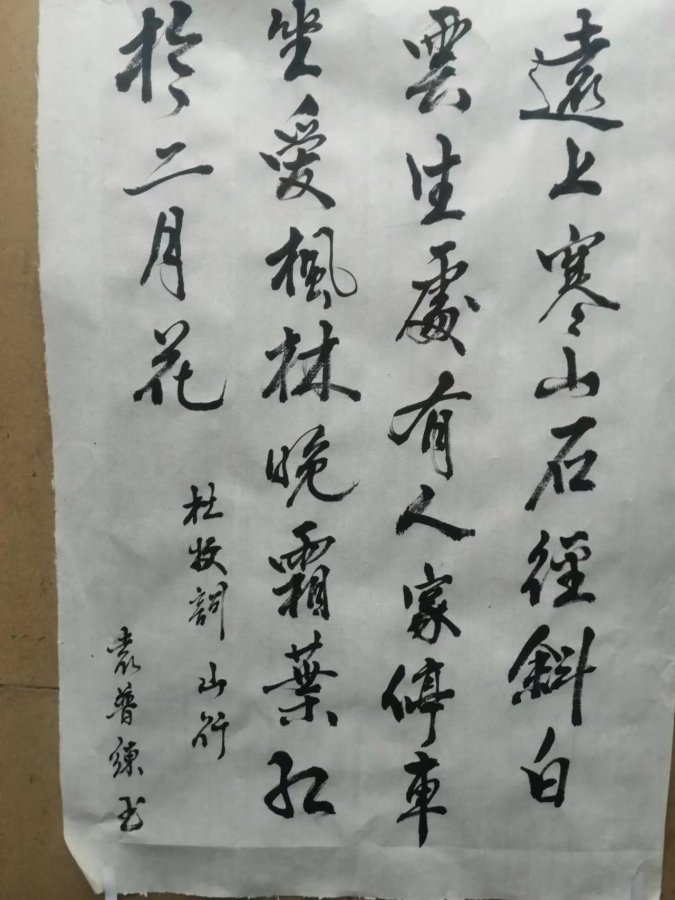 遠上寒山石徑斜白
雲生處有人家停車
坐愛楓林晚霜葉红
於二月花
杜牧詞山行
袁普練书